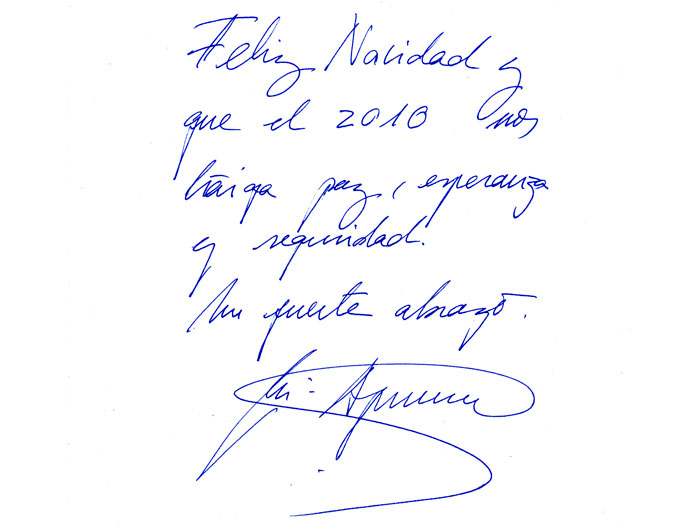 Feliz Navidad y
que el 2010 nos
traiga paz, esperanza
y seguridad.
Un fuerte abrazo.